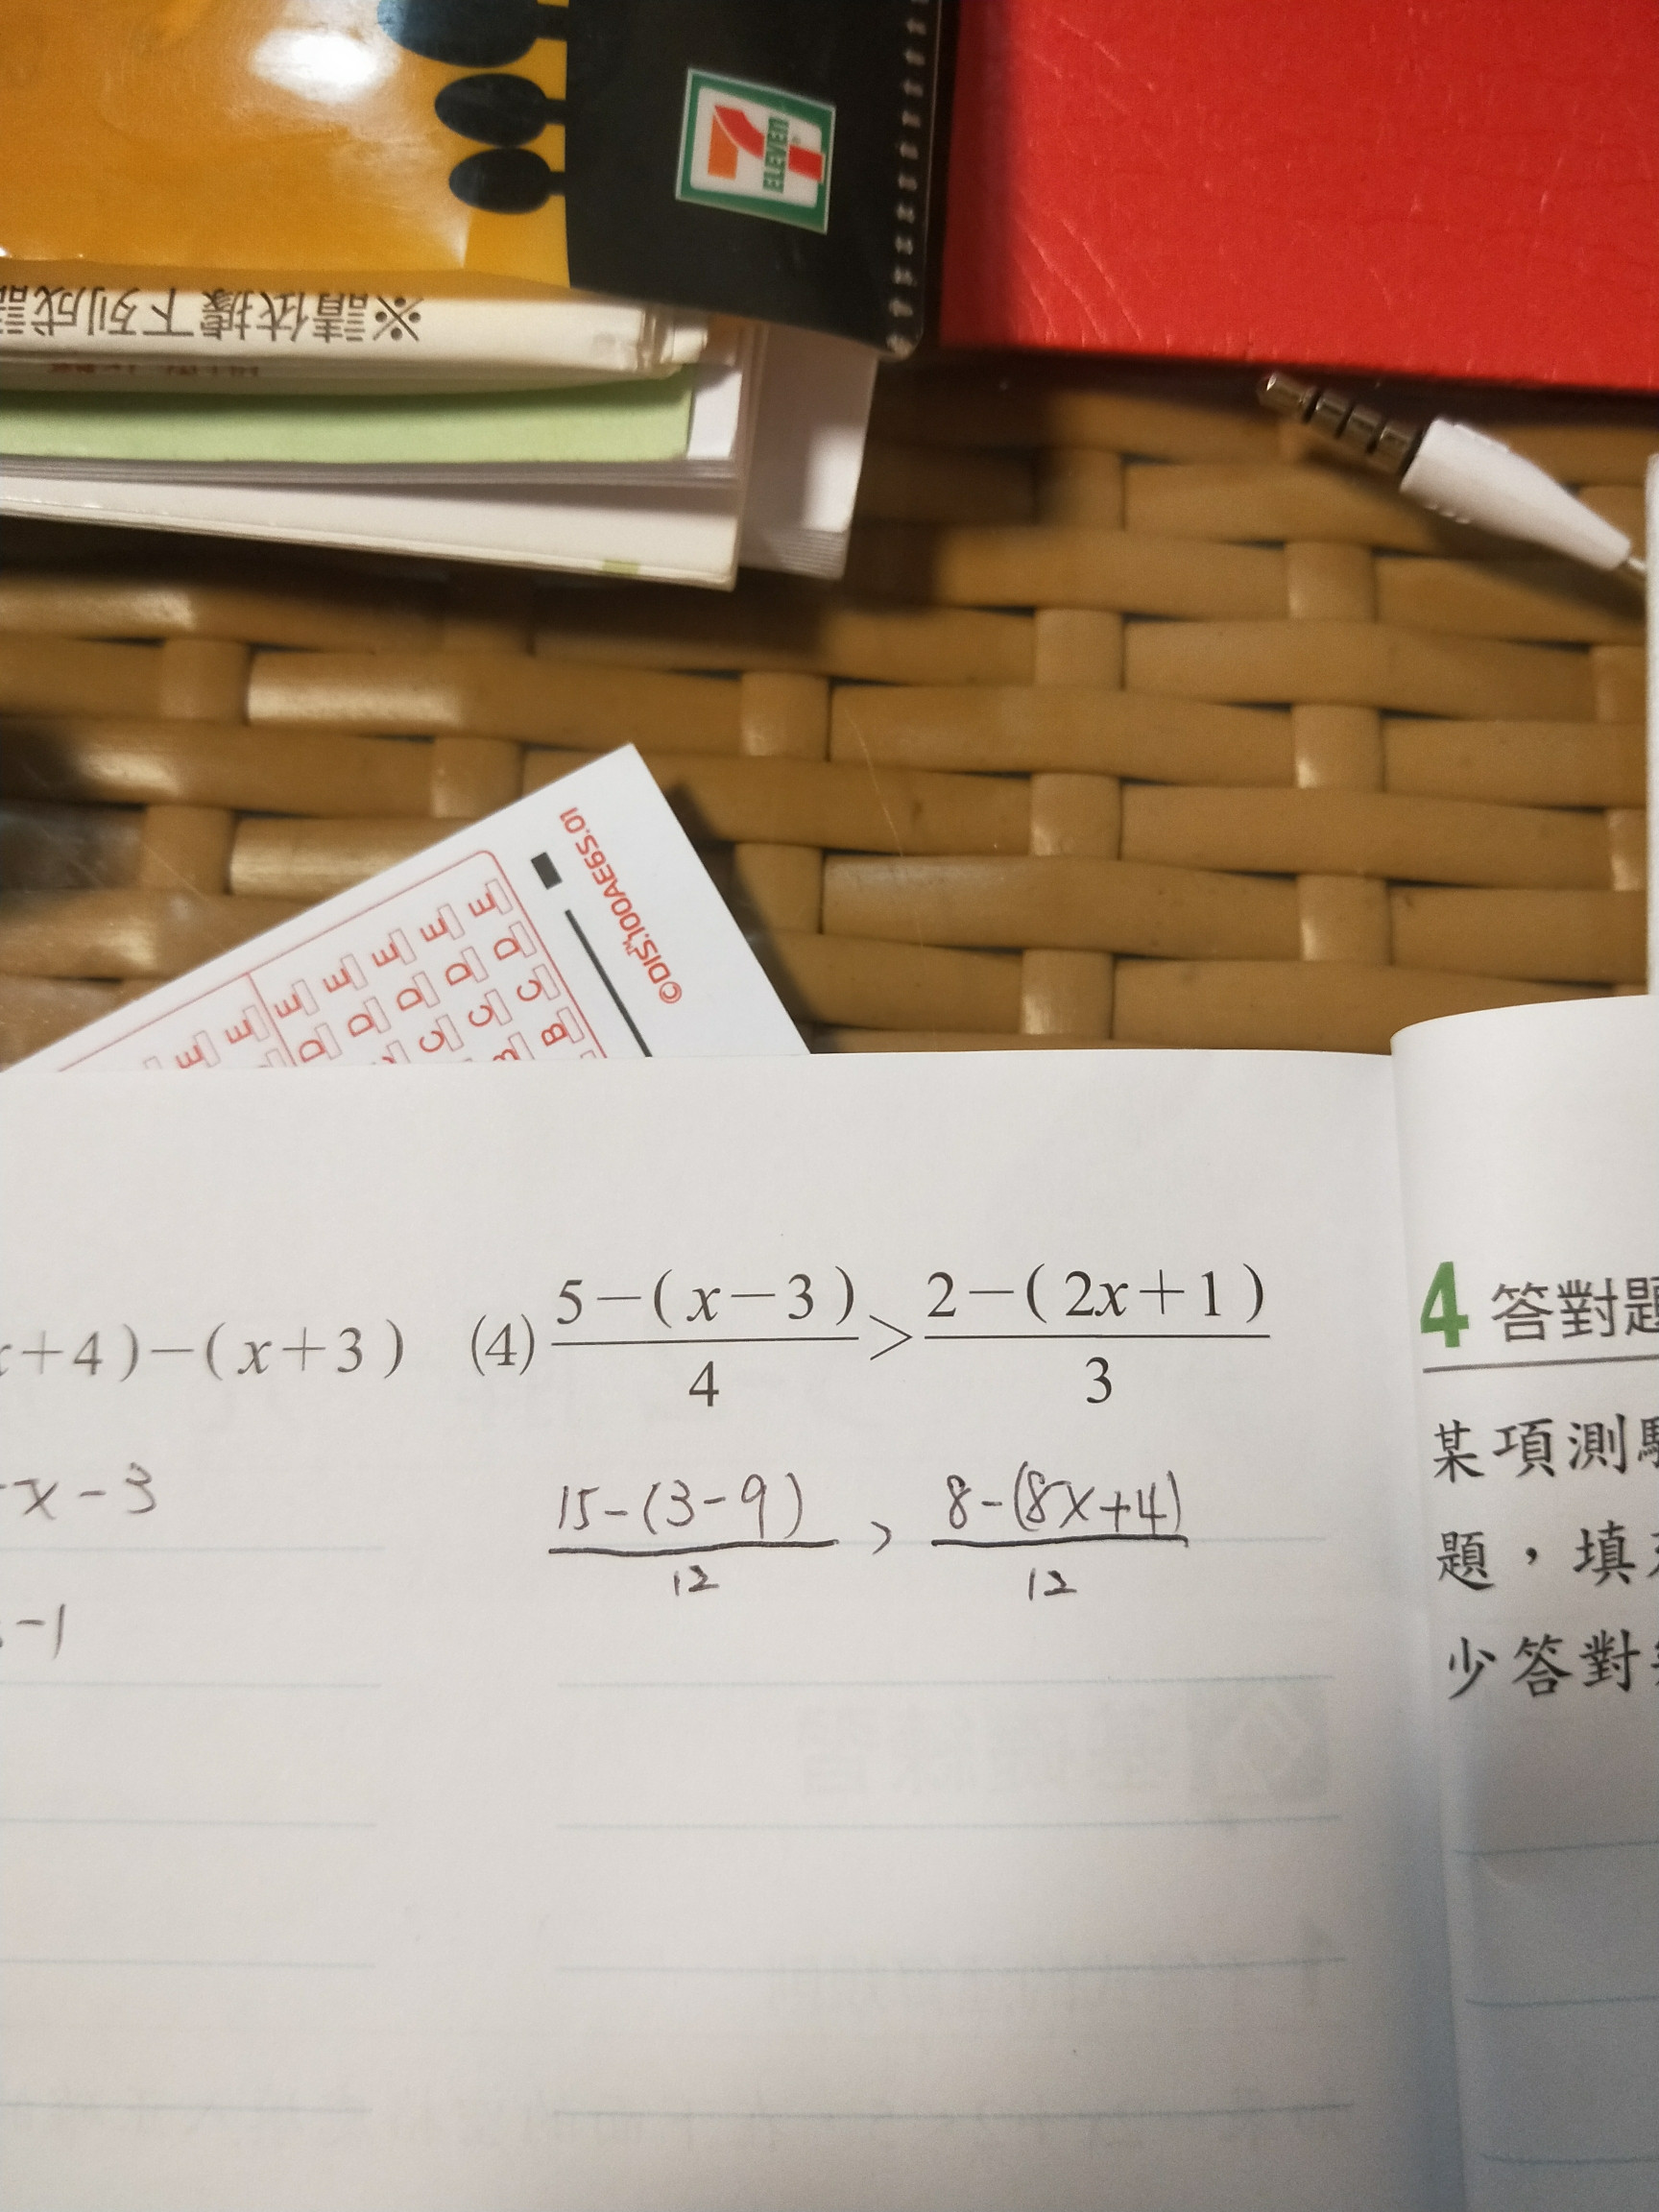 7-ELEVEN
※請依據下列成語
©DIS.100AE6S.01
E E E E E E E
D D D D D
C C C
B B
x+4)-(x+3)
-x-3
-1
(4) 5-(x-3)/4 > 2-(2x+1)/3
15-(3-9)/12 > 8-(8x+4)/12
4 答對題
某項測驗
題，填充
少答對